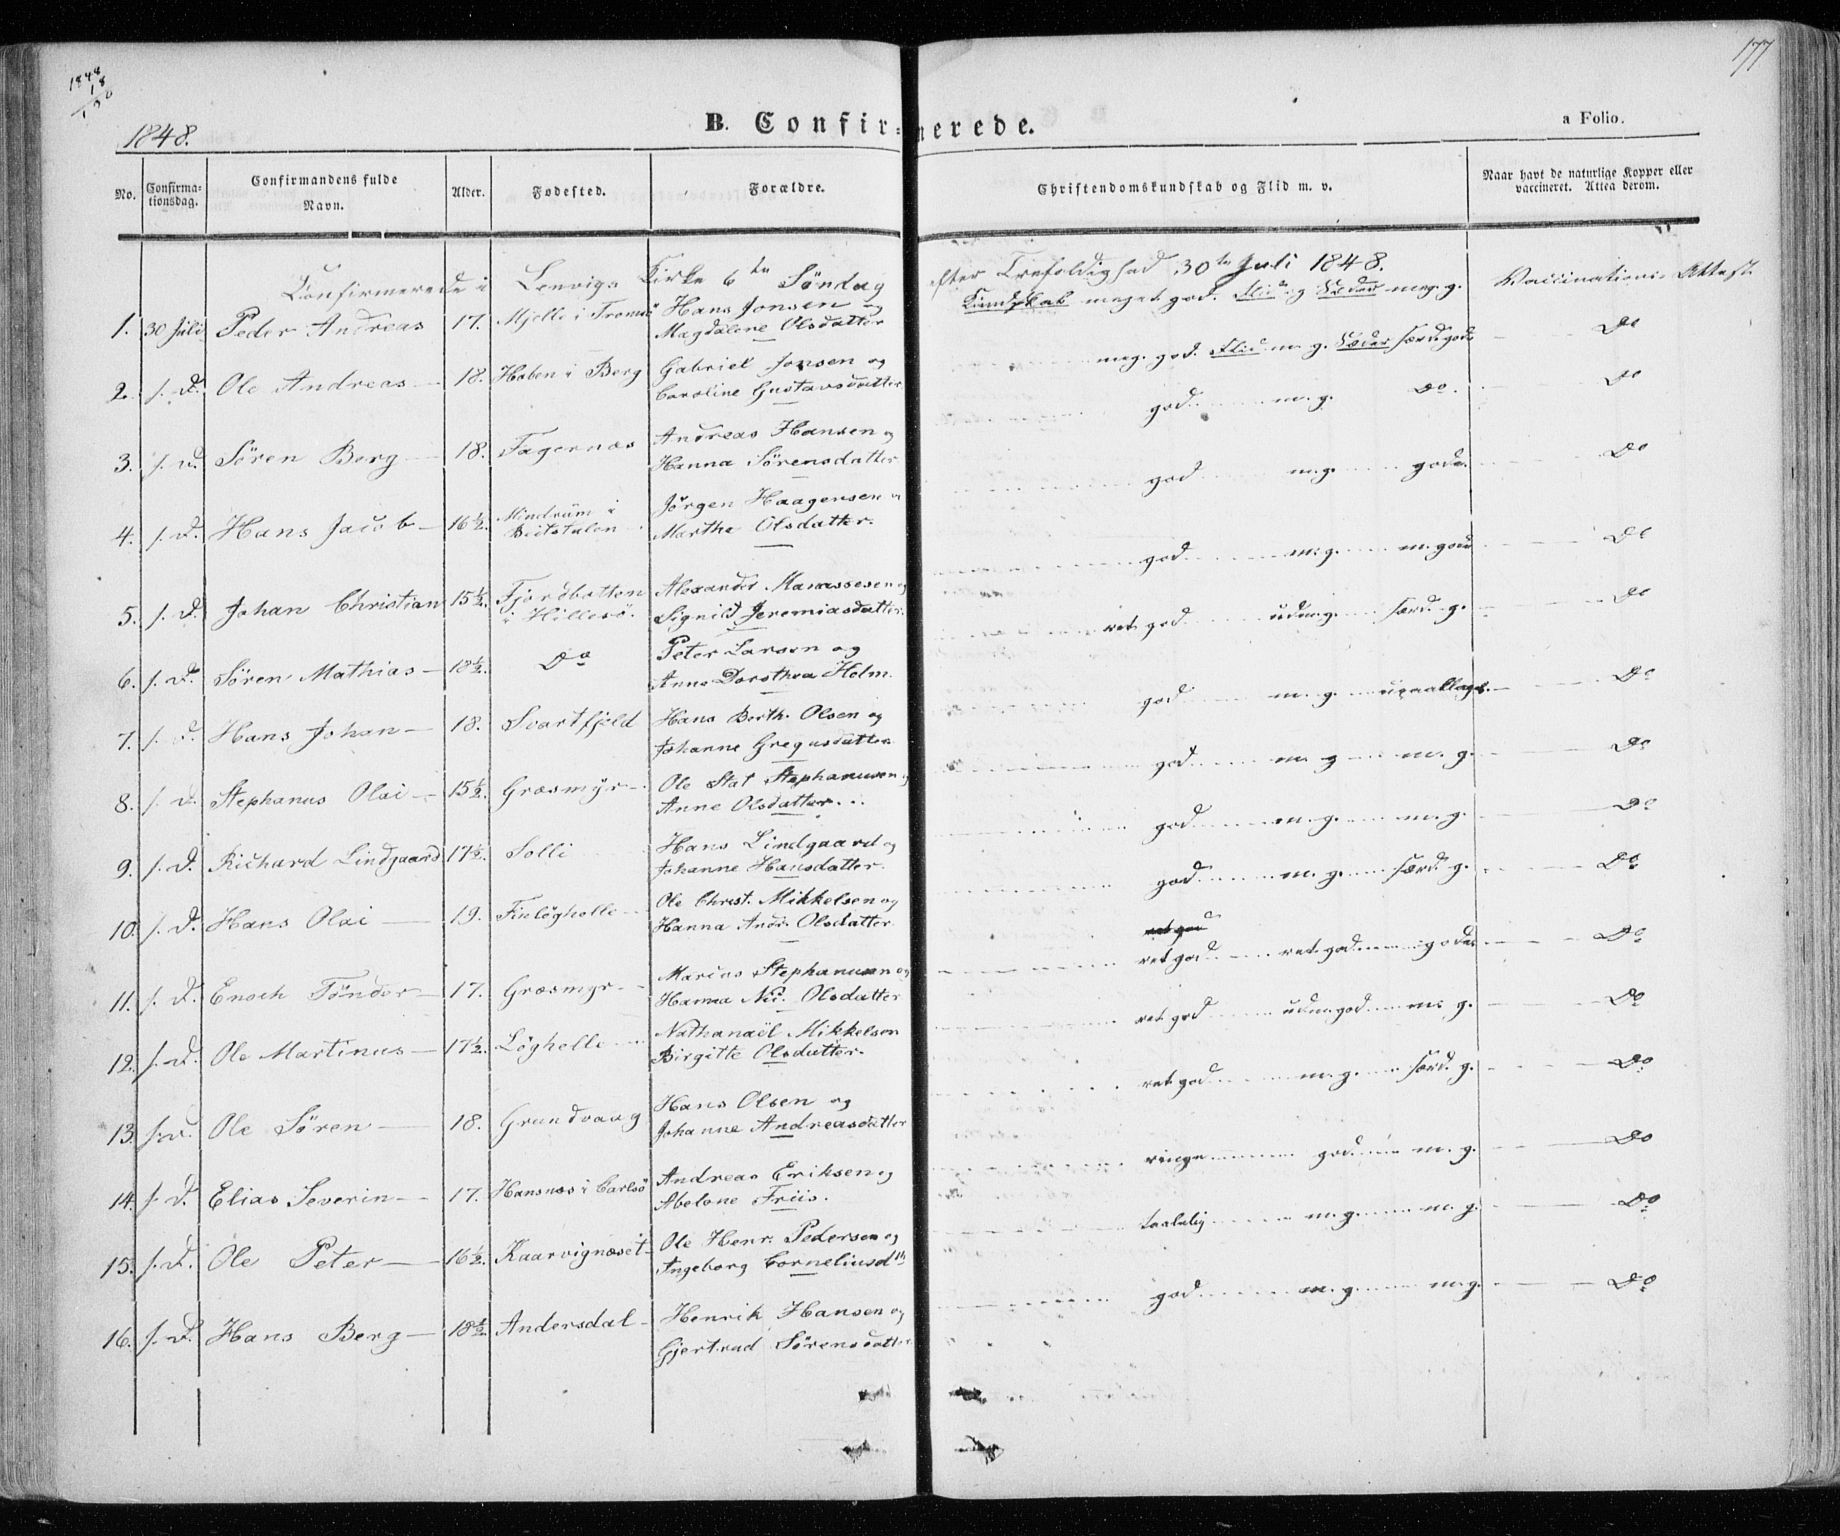 177
1848
18
130
1848.
B. Confirmerede.
a Folio.
No.
Confirmationsdag.
Confirmandens fulde Navn.
Alder.
Fødested.
Forældre.
Christendomskundskab og Flid m. v.
Naar havt de naturlige Kopper eller vaccineret. Attest derom.
Confirmerede i Lenvigs Kirke 6te Søndag efter Trefoldighed 30te Juli 1848.
1. 30 Juli Peder Andreas 17. Mjelle i Tromsö Hans Jonsen og Magdalene Olsdatter Kundskab meget god. Flid og Sæder meg. g. Vaccinations Attest
2. s. D. Ole Andreas 18. Haben i Berg Gabriel Jonsen og Caroline Gustavsdatter meg. god. Flid m. g. Sæder særd. gode Do
3. s. D. Sören Berg 18. Fagernæs Andreas Hansen og Hanna Sörensdatter god m. g. Do. Do
4. s. D. Hans Jacob 16½. Mindrum i Beitstalen Jörgen Haagensen og Marthe Olsdatter. god m. g. gode. Do
5. s. D. Johan Christian 15½. Fjordbotten i Hillesö. Alexander Manassesen og Signild Jeremiasdatter. god m. g. m. gode Do
6. s. D. Sören Mathias 18½. Do Peter Larsen og Anne Dorothea Holm. ret god udm. g. særd. g. Do
7. s. D. Hans Johan 18. Svartfjeld Hans Berth. Olsen og Johanne Gregusdatter god m. g. upaaklagel. Do
8. s. D. Stephanus Olai 15½. Græsmyr Ole Stat Stephanusen og Anne Olsdatter. god m. g m. g. Do
9. s. D. Richard Lindgaard 17½. Solli Hans Lindgaard og Johanne Hansdatter. god m. g. m. g. Do
10. s. D. Hans Olai 19. Finlöghelle Ole Christ. Mikkelsen og Hanna Andr. Olsdatter god m. g. særd. g. Do
11. s. D. Enoch Tönder 17. Græsmyr Marius Stephanusen og Hanna Nic. Olsdatter ret god ret god ret god gode Do
12. s. D. Ole Martinus 17½. Löghelle Nathanaël Mikkelsen Birgitte Olsdatter. ret god udm. god m. g. Do
13. s. D. Ole Sören 18. Grundvaag Hans Olsen og Johanne Andreasdatter ret god m. g. særd. g. Do
14. s. D. Elias Severin 17. Hansnæs i Carlsö Andreas Eriksen og Abelone Friis. ringe god m. g. Do
15. s. D. Ole Peter 16½. Kaarvignæset Ole Henr. Pedersen og Ingeborg Corneliusdtr taalelig m. g. m. g. Do
16. s. D. Hans Berg 18½. Andersdal Henrik Hansen og Gjertrud Sörensdatter god m. g. m. g. Do